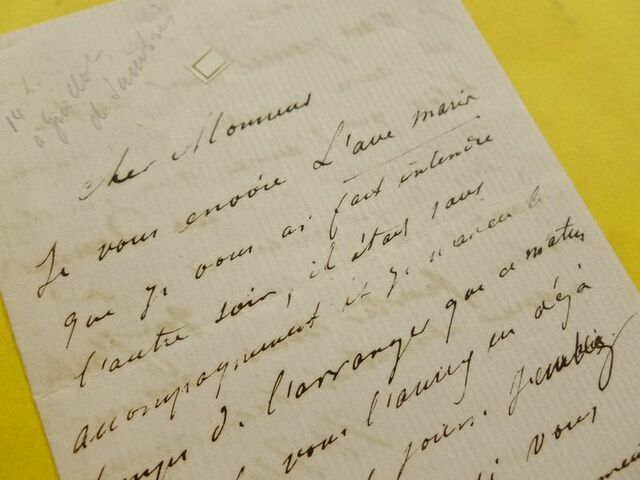 14 L.
à
de
cher Monsieur
Je vous envoie L'ave maria
que je vous ai fait entendre
l'autre soir, il était sans
accompagnement et je
de l'arranger que ce matin
vous l'auriez eu déjà
jours.
vous